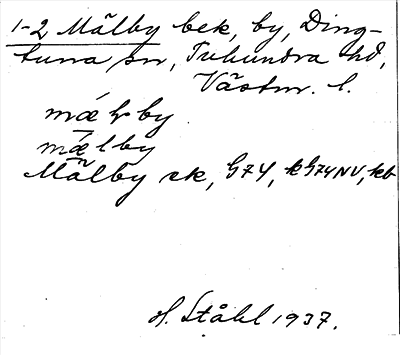 1-2 Mälby bek, by, Ding-
tuna sn, Tuhundra hd,
Västm. l.
mälby
Mälby ek, G74, kG74NV, kb
H. Ståhl 1937.